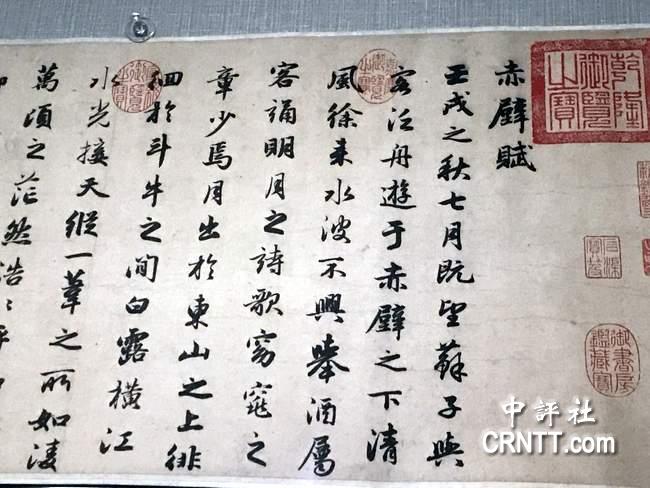 乾隆御覽之寶
御書房鑑藏寶
赤壁賦
壬戌之秋七月既望蘇子與
客泛舟遊于赤壁之下清
風徐来水波不興舉酒屬
客誦明月之詩歌窈窕之
章少焉月出於東山之上徘
徊於斗牛之間白露橫江
水光接天縱一葦之所如凌
萬頃之茫然浩〻乎
中評社
CRNTT.com